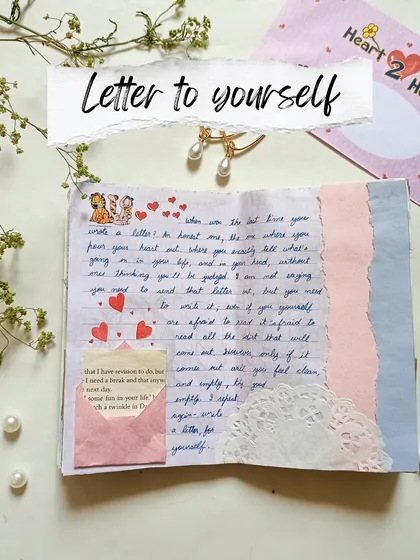 Letter to yourself
Heart
2
H
When was the last time you
wrote a letter? An honest one, the one where you
pour your heart out. where you exactly tell what's
going on in your life, and in your head, without
once thinking you'll be judged. I am not saying
you need to send that letter out, but you need
to write it; even if you yourself
are afraid to read it. afraid to
read all the dirt that will
come out. However only if it
comes out will you feel clean,
and empty, big good
empty. I repeat
again- write
a letter, for
yourself.
that I have revision to do, but
I need a break and that anyw
next day.
some fun in your life,'
ch a twinkle in Da